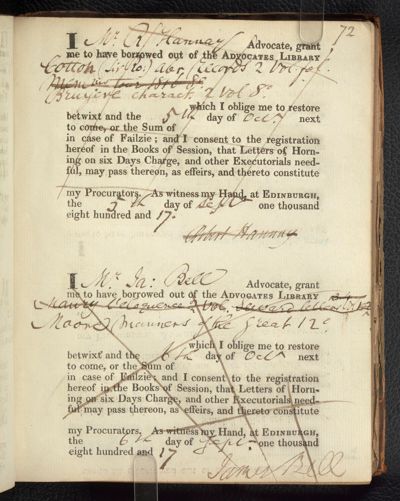 72
I Mr. Rt Hannay Advocate, grant
me to have borrowed out of the ADVOCATES LIBRARY
Cotton (Sir Ro:) abr. Records 2 Vol. fol.
tour 1810 8o
Bruyere charact. 2 vol 8o
which I oblige me to restore
betwixt and the 5th day of Octr next
to come, or the Sum of
in case of Failzie; and I consent to the registration
hereof in the Books of Session, that Letters of Horn-
ing on six Days Charge, and other Executorials need-
ful, may pass thereon, as effeirs, and thereto constitute
my Procurators. As witness my Hand, at EDINBURGH,
the 5th day of Septr one thousand
eight hundred and 17.
Robert Hannay
I Mr. Ja: Bell Advocate, grant
me to have borrowed out of the ADVOCATES LIBRARY
Maury Eloquence 2 Vol. Seward letters
Moore Manners of the Great 12o
which I oblige me to restore
betwixt and the 6th day of Octr next
to come, or the Sum of
in case of Failzie; and I consent to the registration
hereof in the Books of Session, that Letters of Horn-
ing on six Days Charge, and other Executorials need-
ful may pass thereon, as effeirs, and thereto constitute
my Procurators. As witness my Hand, at EDINBURGH,
the 6th day of Septr one thousand
eight hundred and 17
James Bell